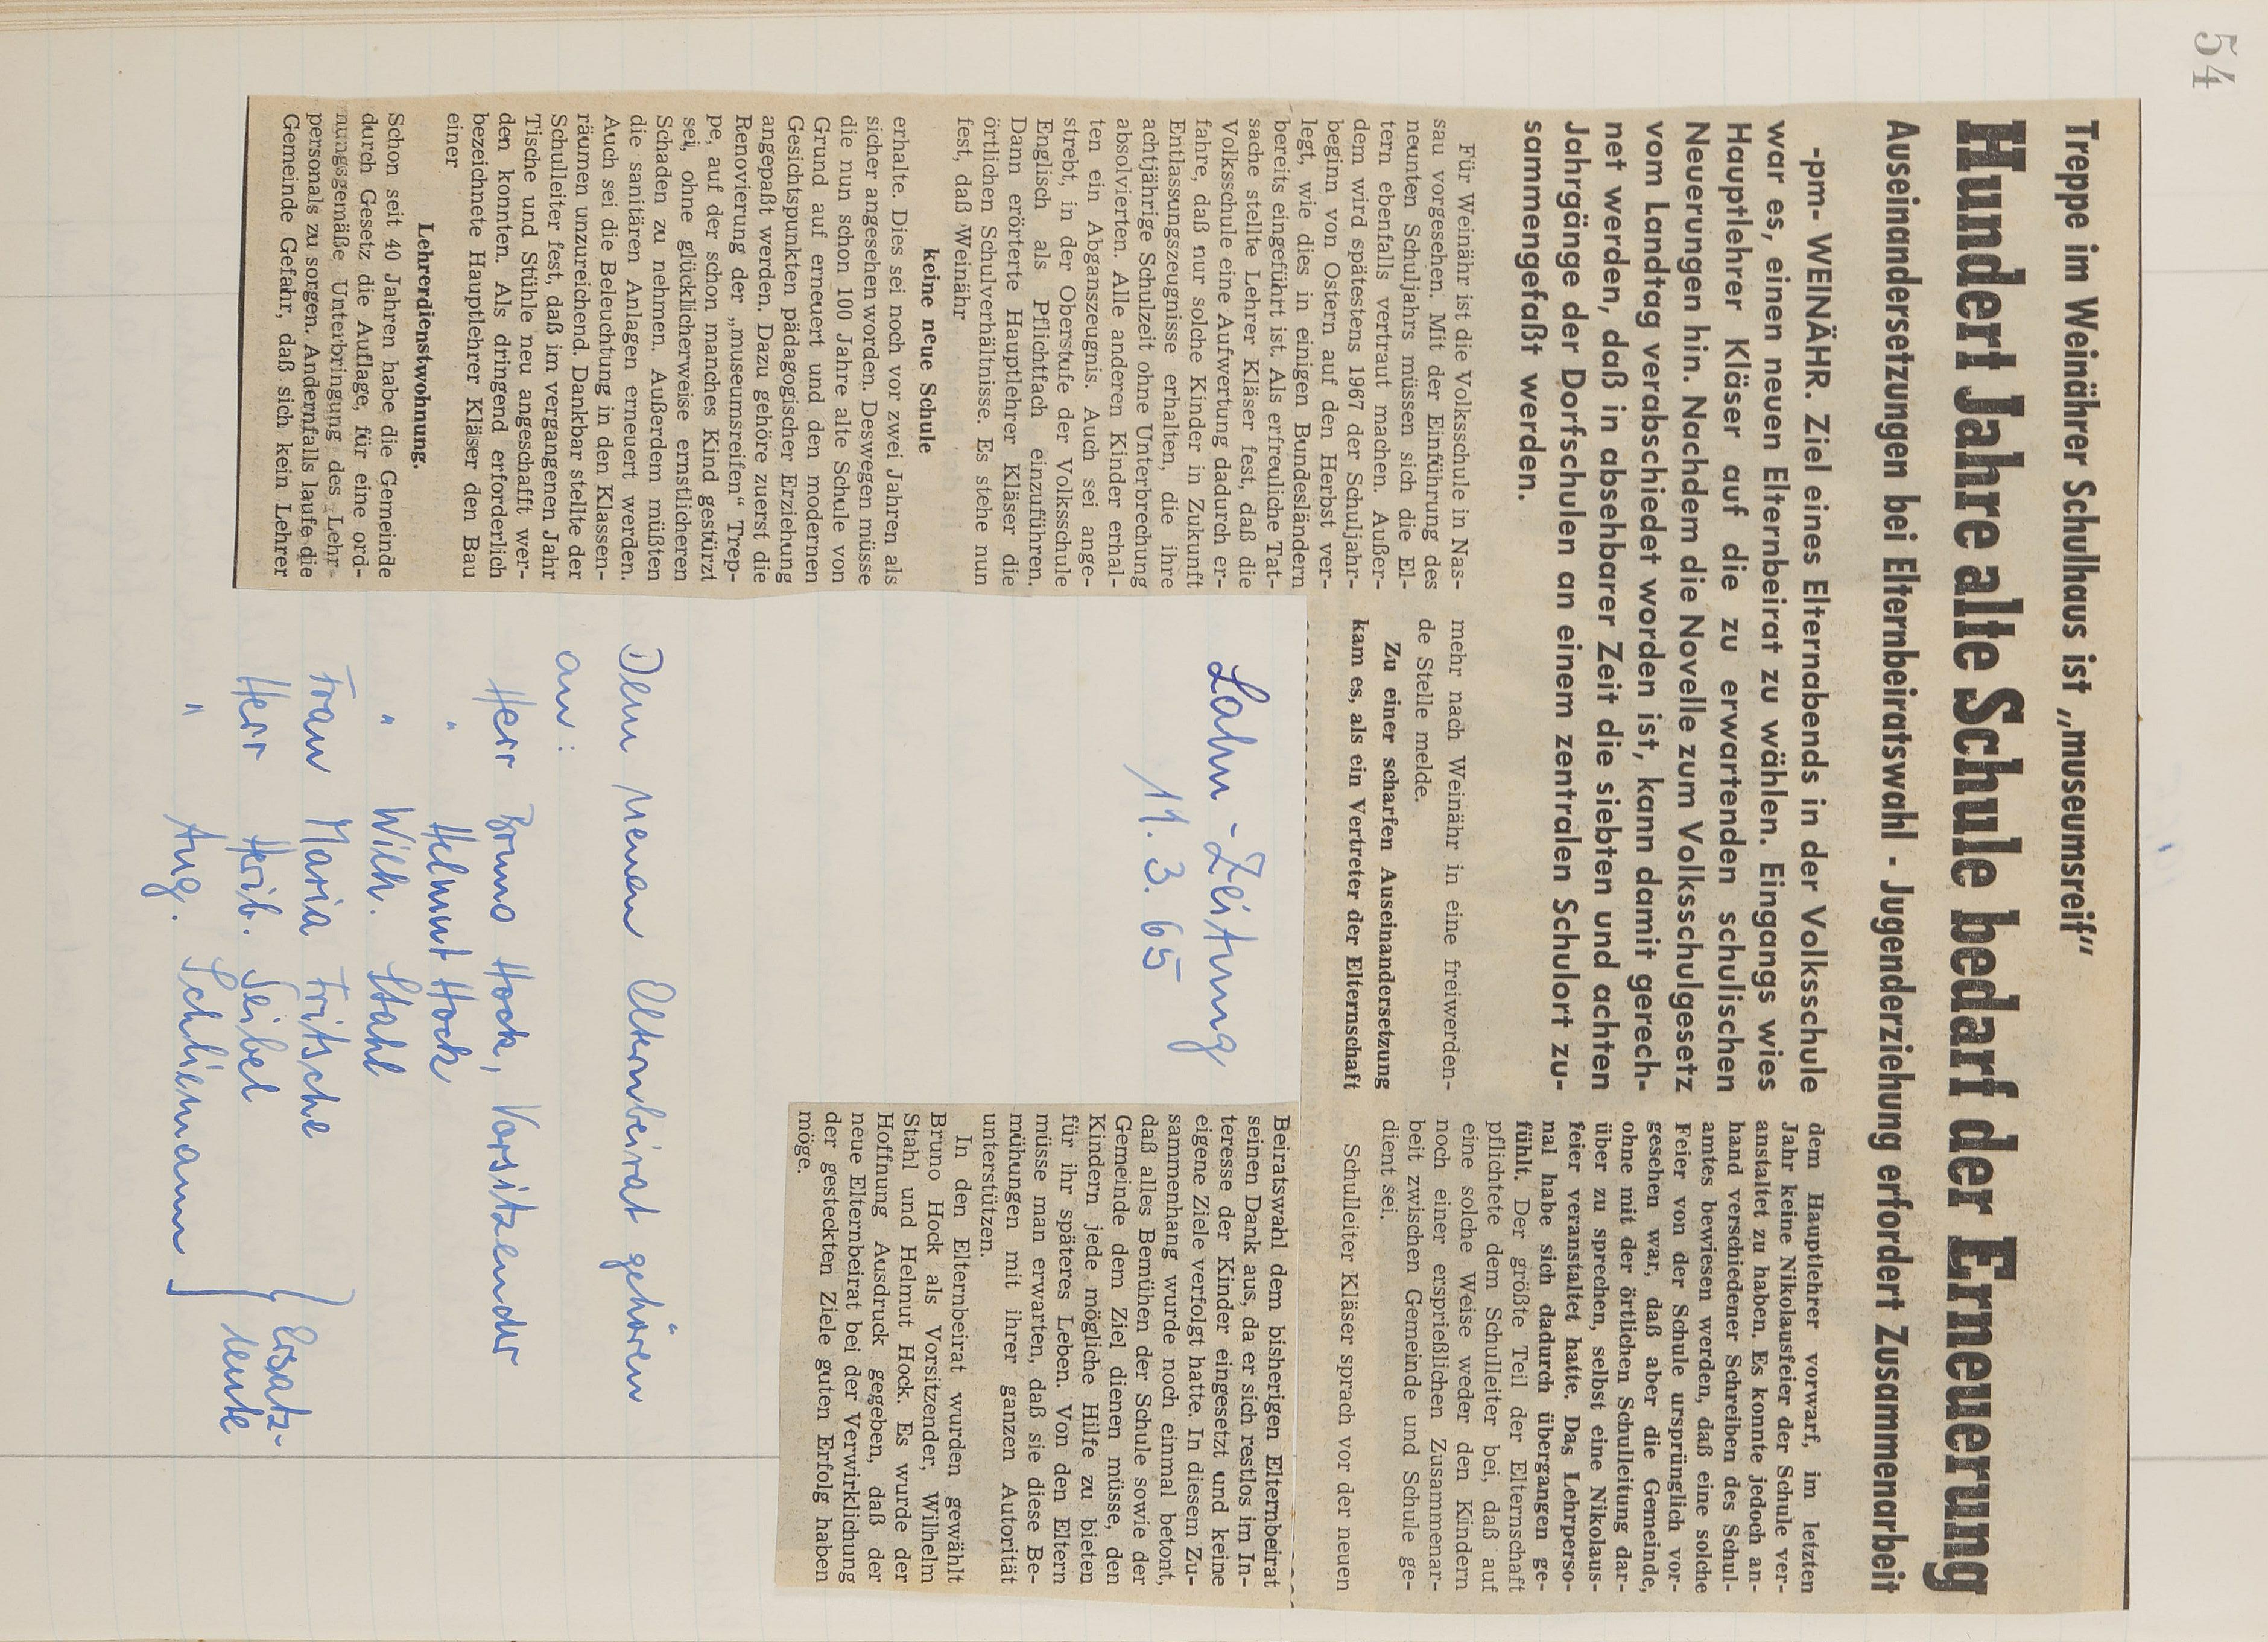 54
Treppe im Weinährer Schulhaus ist „museumsreif“
Hundert Jahre alte Schule bedarf der Erneuerung
Auseinandersetzungen bei Elternbeiratswahl - Jugenderziehung erfordert Zusammenarbeit
-pm- WEINÄHR. Ziel eines Elternabends in der Volksschule
war es, einen neuen Elternbeirat zu wählen. Eingangs wies
Hauptlehrer Kläser auf die zu erwartenden schulischen
Neuerungen hin. Nachdem die Novelle zum Volksschulgesetz
vom Landtag verabschiedet worden ist, kann damit gerech-
net werden, daß in absehbarer Zeit die siebten und achten
Jahrgänge der Dorfschulen an einem zentralen Schulort zu-
sammengefaßt werden.
Für Weinähr ist die Volksschule in Nas-
sau vorgesehen. Mit der Einführung des
neunten Schuljahrs müssen sich die El-
tern ebenfalls vertraut machen. Außer-
dem wird spätestens 1967 der Schuljahr-
beginn von Ostern auf den Herbst ver-
legt, wie dies in einigen Bundesländern
bereits eingeführt ist. Als erfreuliche Tat-
sache stellte Lehrer Kläser fest, daß die
Volksschule eine Aufwertung dadurch er-
fahre, daß nur solche Kinder in Zukunft
Entlassungszeugnisse erhalten, die ihre
achtjährige Schulzeit ohne Unterbrechung
absolvierten. Alle anderen Kinder erhal-
ten ein Abganszeugnis. Auch sei ange-
strebt, in der Oberstufe der Volksschule
Englisch als Pflichtfach einzuführen.
Dann erörterte Hauptlehrer Kläser die
örtlichen Schulverhältnisse. Es stehe nun
fest, daß Weinähr
keine neue Schule
erhalte. Dies sei noch vor zwei Jahren als
sicher angesehen worden. Deswegen müsse
die nun schon 100 Jahre alte Schule von
Grund auf erneuert und den modernen
Gesichtspunkten pädagogischer Erziehung
angepaßt werden. Dazu gehöre zuerst die
Renovierung der „museumsreifen“ Trep-
pe, auf der schon manches Kind gestürzt
sei, ohne glücklicherweise ernstlicheren
Schaden zu nehmen. Außerdem müßten
die sanitären Anlagen erneuert werden.
Auch sei die Beleuchtung in den Klassen-
räumen unzureichend. Dankbar stellte der
Schulleiter fest, daß im vergangenen Jahr
Tische und Stühle neu angeschafft wer-
den konnten. Als dringend erforderlich
bezeichnete Hauptlehrer Kläser den Bau
einer
Lehrerdienstwohnung.
Schon seit 40 Jahren habe die Gemeinde
durch Gesetz die Auflage, für eine ord-
nungsgemäße Unterbringung des Lehr-
personals zu sorgen. Andernfalls laufe die
Gemeinde Gefahr, daß sich kein Lehrer
mehr nach Weinähr in eine freiwerden-
de Stelle melde.
Zu einer scharfen Auseinandersetzung
kam es, als ein Vertreter der Elternschaft
dem Hauptlehrer vorwarf, im letzten
Jahr keine Nikolausfeier der Schule ver-
anstaltet zu haben. Es konnte jedoch an-
hand verschiedener Schreiben des Schul-
amtes bewiesen werden, daß eine solche
Feier von der Schule ursprünglich vor-
gesehen war, daß aber die Gemeinde,
ohne mit der örtlichen Schulleitung dar-
über zu sprechen, selbst eine Nikolaus-
feier veranstaltet hatte. Das Lehrperso-
nal habe sich dadurch übergangen ge-
fühlt. Der größte Teil der Elternschaft
pflichtete dem Schulleiter bei, daß auf
eine solche Weise weder den Kindern
noch einer ersprießlichen Zusammenar-
beit zwischen Gemeinde und Schule ge-
dient sei.
Schulleiter Kläser sprach vor der neuen
Beiratswahl dem bisherigen Elternbeirat
seinen Dank aus, da er sich restlos im In-
teresse der Kinder eingesetzt und keine
eigene Ziele verfolgt hatte. In diesem Zu-
sammenhang wurde noch einmal betont,
daß alles Bemühen der Schule sowie der
Gemeinde dem Ziel dienen müsse, den
Kindern jede mögliche Hilfe zu bieten
für ihr späteres Leben. Von den Eltern
müsse man erwarten, daß sie diese Be-
mühungen mit ihrer ganzen Autorität
unterstützen.
In den Elternbeirat wurden gewählt
Bruno Hock als Vorsitzender, Wilhelm
Stahl und Helmut Hock. Es wurde der
Hoffnung Ausdruck gegeben, daß der
neue Elternbeirat bei der Verwirklichung
der gesteckten Ziele guten Erfolg haben
möge.
Lahn-Zeitung
11. 3. 65
Dem neuen Elternbeirat gehören
an:
Herr Bruno Hock, Vorsitzender
" Helmut Hock
" Wilh. Stahl
Frau Maria Fritsche
Herr Herib. Seibel
" Aug. Schliemann
Ersatz-
leute